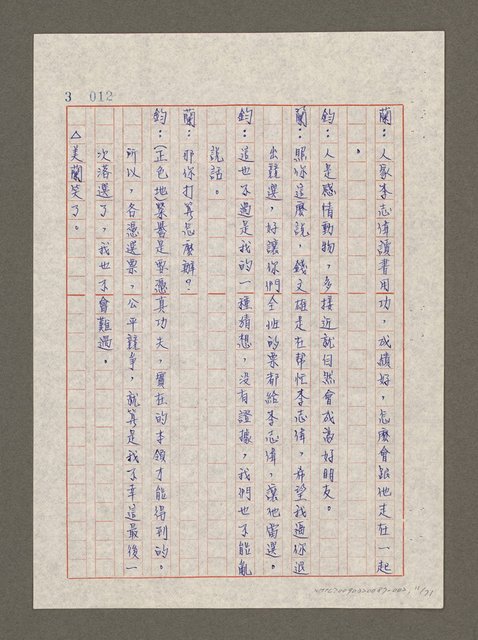 3 012
蘭：人家李志偉讀書用功，成績好，怎麼會跟他走在一起
。
鈞：人是感情動物，多接近就自然會成為好朋友。
蘭：照你這麼說，錢文雄是在幫忙李志偉，希望我逼你退
出競選，好讓你們全班的票都給李志偉，讓他當選。
鈞：這也不過是我的一種猜想，沒有證據，我們也不能亂
說話。
蘭：那你打算怎麼辦？
鈞：（正色地）榮譽是要憑真功夫，實在的本領才能得到的。
所以，各憑選票，公平競爭，就算是我不幸這最後一
次落選了，我也不會難過。
△美蘭笑了。